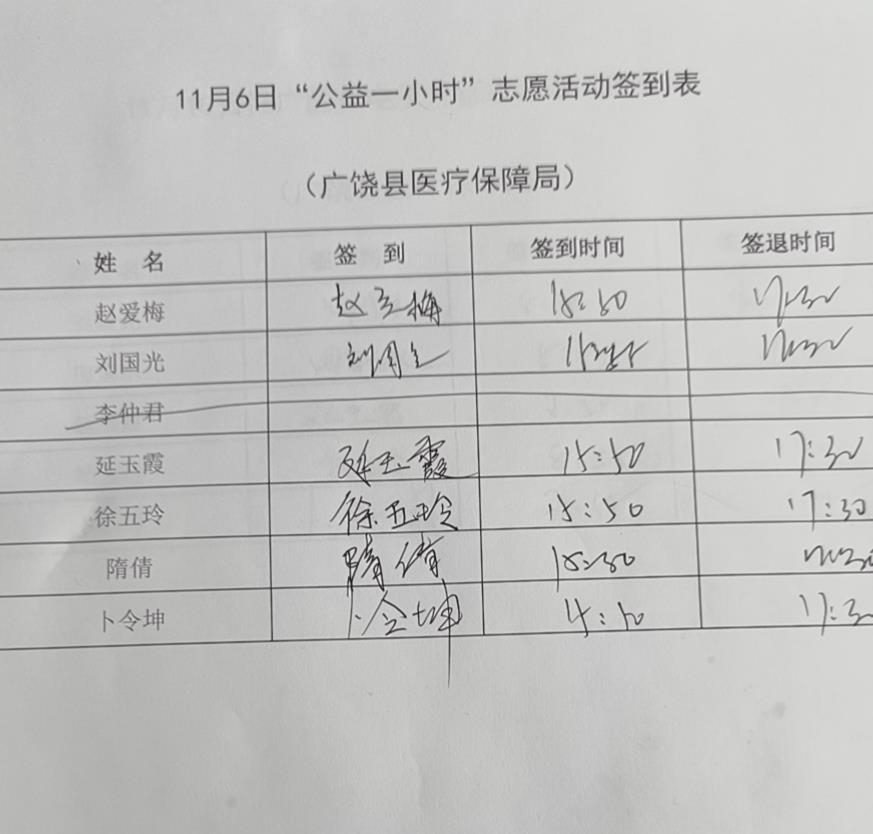 11月6日“公益一小时”志愿活动签到表
（广饶县医疗保障局）
姓 名 签 到 签到时间 签退时间
赵爱梅 赵爱梅 15:50 17:30
刘国光 刘国光 17:30
李仲君
延玉霞 延玉霞 15:50 17:30
徐五玲 徐五玲 15:50 17:30
隋倩 隋倩 17:30
卜令坤 卜令坤 15:50 17:30